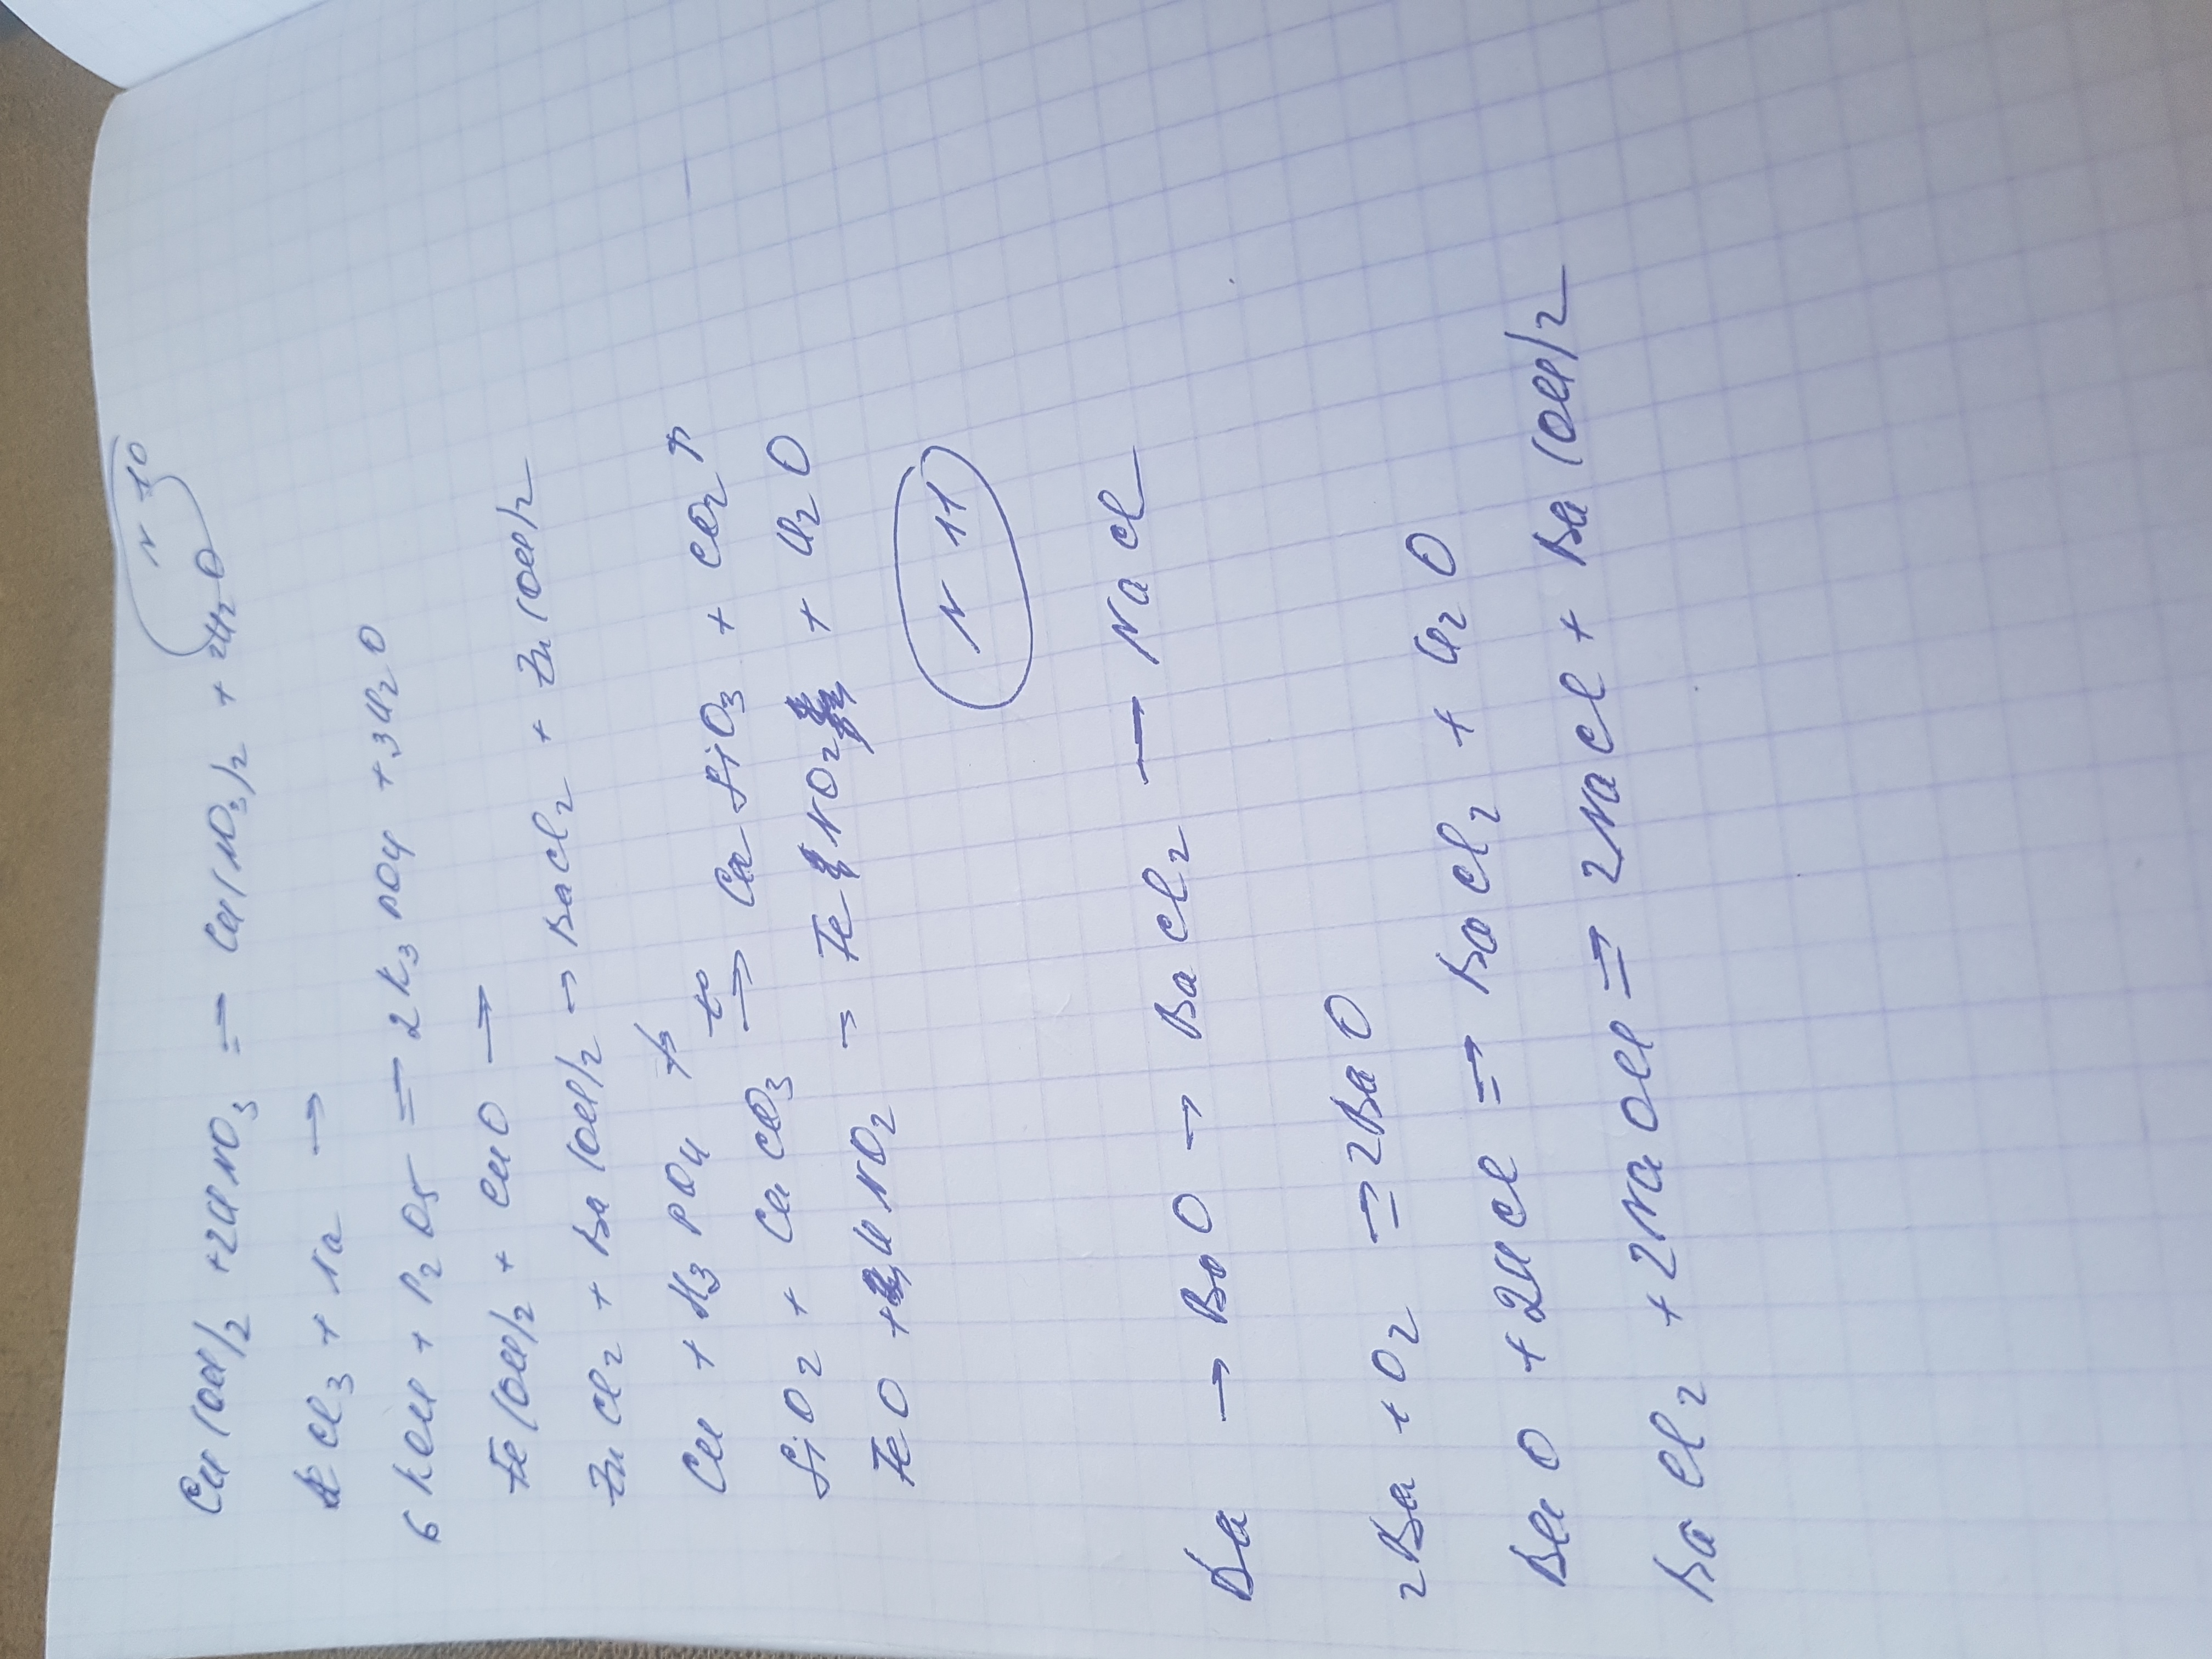 N 10
Cu(OH)2 + 2HNO3 = Cu(NO3)2 + 2H2O
Cl3 + Na →
6KOH + P2O5 = 2K3PO4 + 3H2O
Fe(OH)2 + CuO →
ZnCl2 + Ba(OH)2 → BaCl2 + Zn(OH)2
Cu + H3PO4 ↛
SiO2 + CaCO3 t° ⇒ CaSiO3 + CO2↑
FeO + HNO2 = FeNO2 + H2O
N 11
Ba → BaO → BaCl2 — NaCl
2Ba + O2 = 2BaO
BaO + 2HCl ⇒ BaCl2 + H2O
BaCl2 + 2NaOH ⇒ 2NaCl + Ba(OH)2